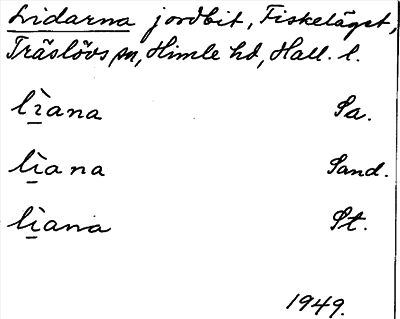 Lidarna jordbit, Fiskeläget,
Träslövs sn, Himle hd, Hall. l.
lìana Sa.
lìana Sand.
lìana St.
1949.